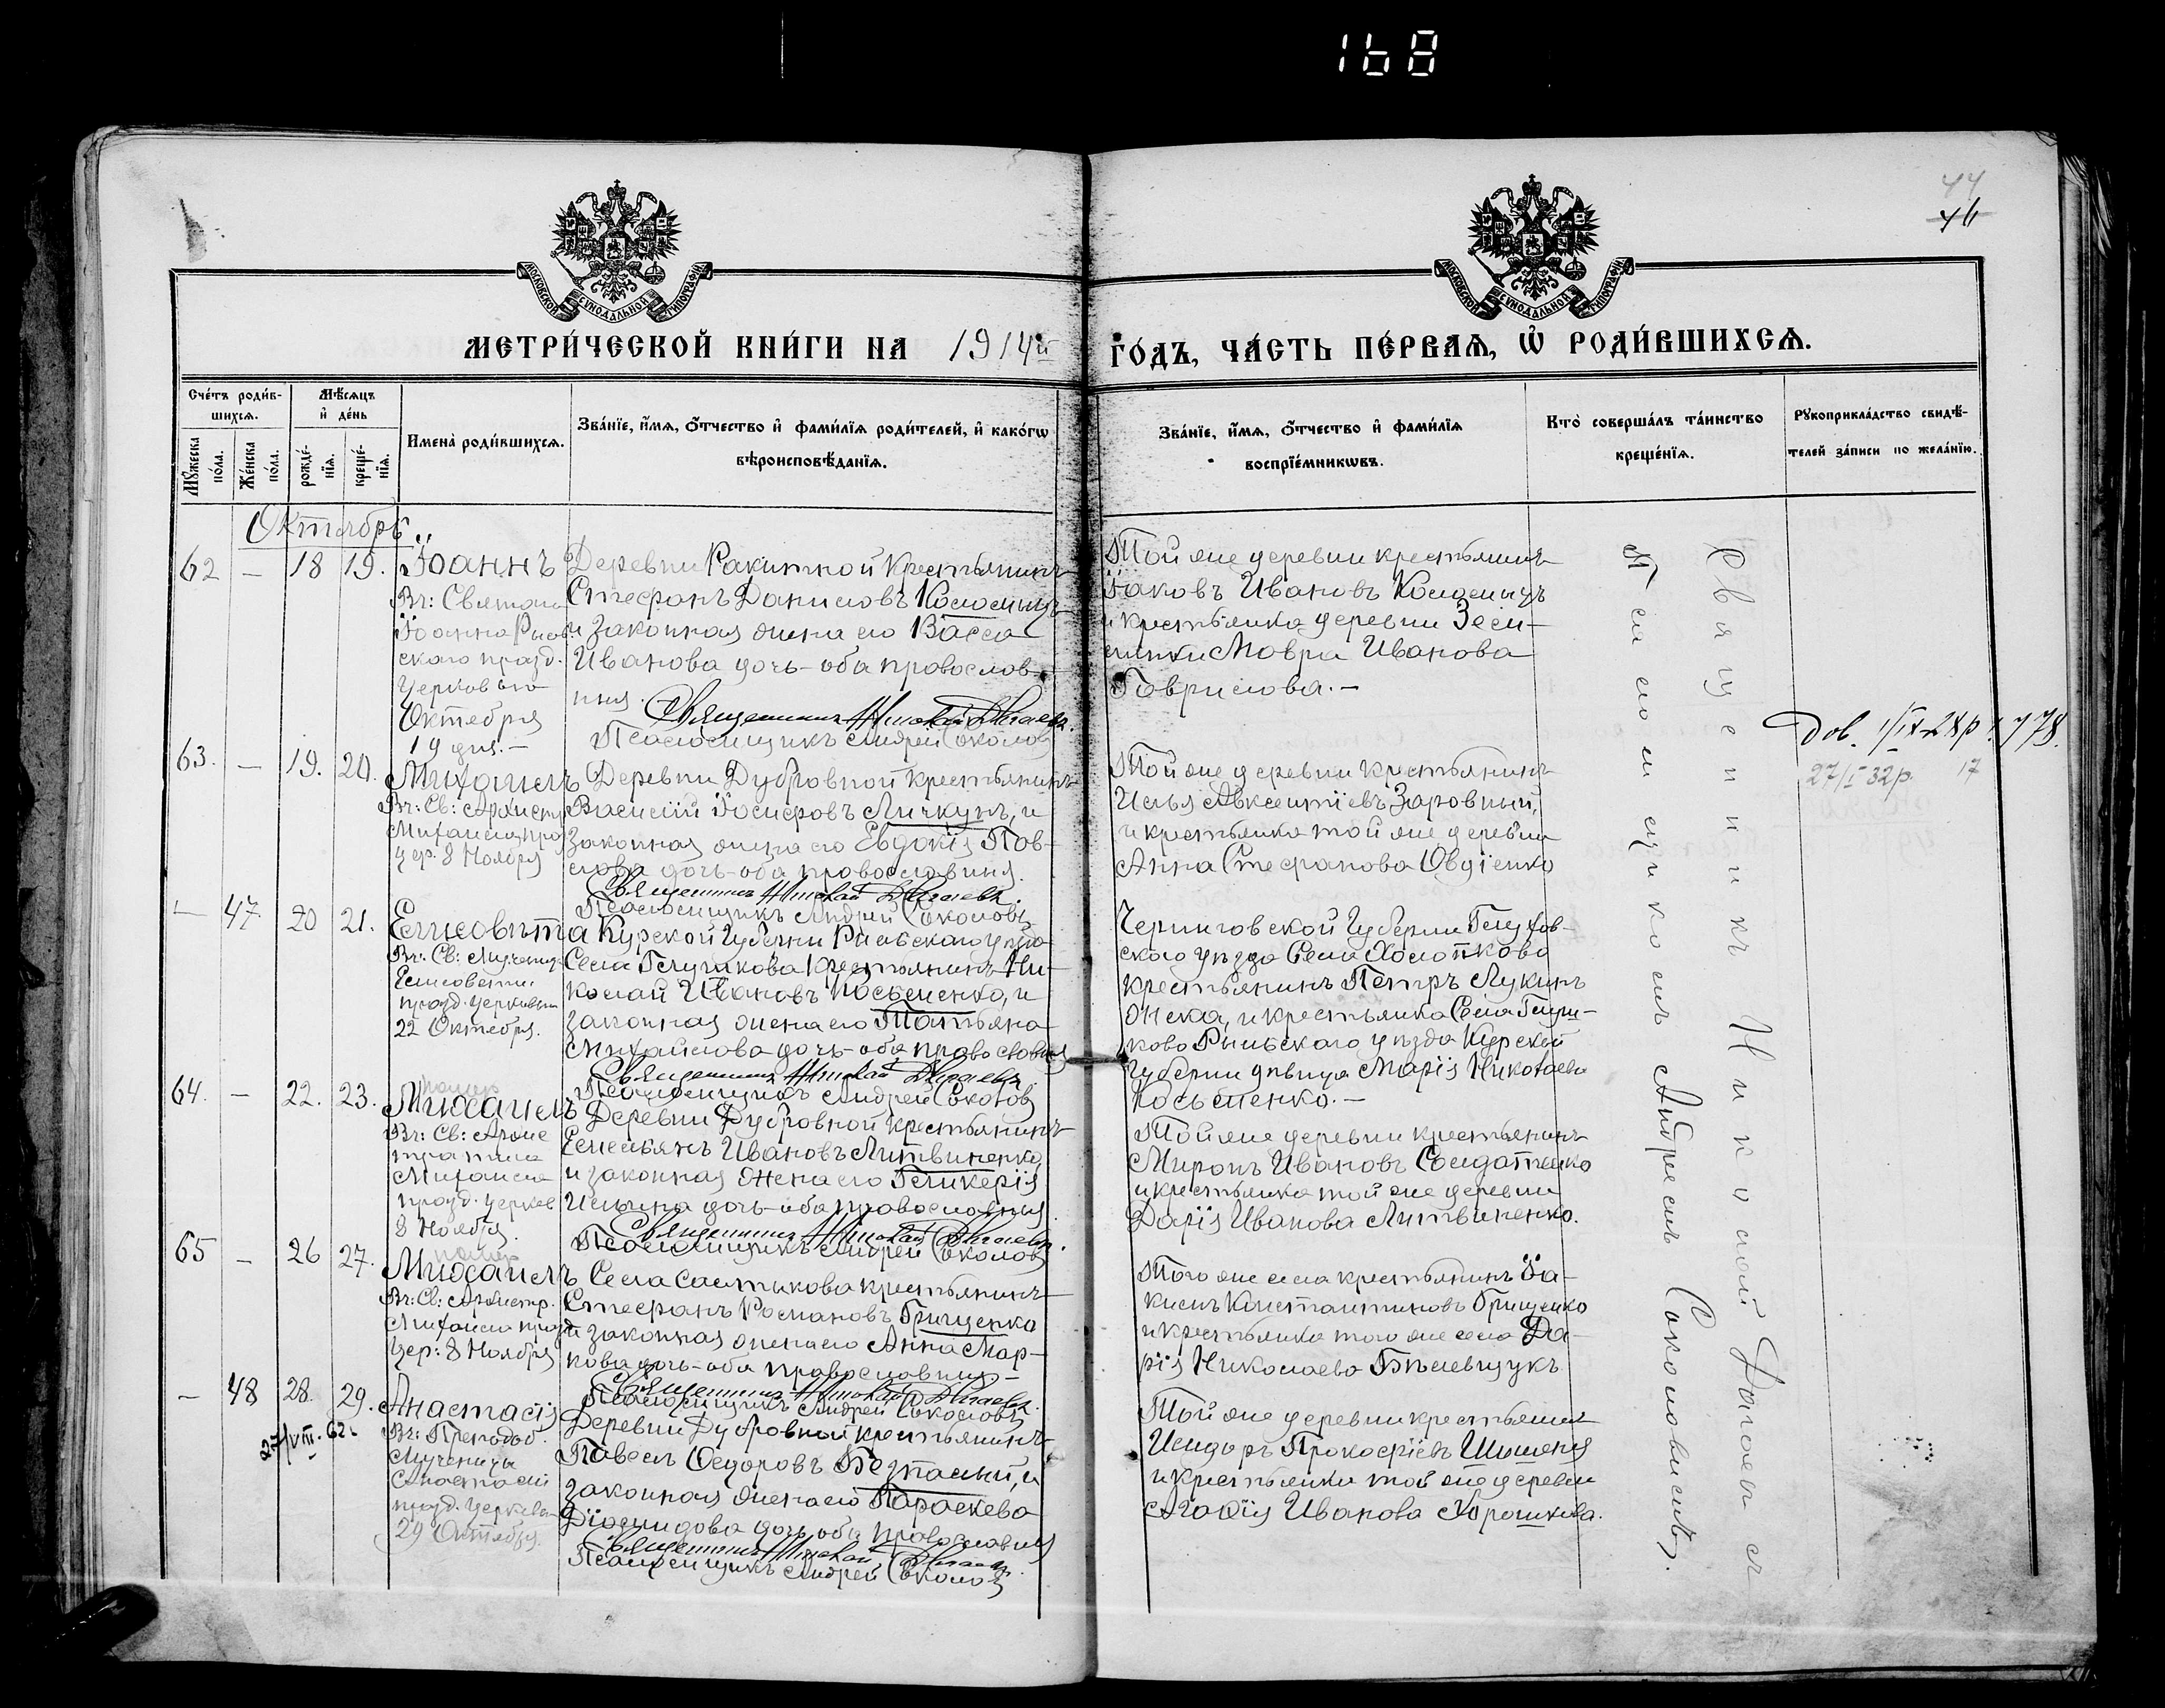 168
44
46
МОСКОВСКОЙ СУНОДАЛЬНОЙ ТИПОГРАФІИ
МОСКОВСКОЙ СУНОДАЛЬНОЙ ТИПОГРАФІИ
МЕТРИ́ЧЕСКОЙ КНИ́ГИ НА 1914й ГО́ДЪ, ЧА́СТЬ ПЕ́РВАЯ, Ѡ҆ РОДИ́ВШИХСЯ.
Сче́тъ роди́в-
шихся.
Мѣ́сяцъ
и҆ де́нь
Мꙋ́жеска по́ла.
Же́нска по́ла.
рожде́-
нїя.
креще́-
нїя.
Имена̀ роди́вшихся.
Зва́нїе, и҆́мя, ѻ҆́тчество и҆ фами́лїя роди́телей, и҆ како́гѡ
вѣроисповѣ́данїя.
Зва́нїе, и҆́мя, ѻ҆́тчество и҆ фами́лїя
воспрїе́мникѡвъ.
Кто̀ соверша́лъ та́инство
креще́нїя.
Рꙋкоприкла́дство свидѣ́-
телей за́писи по жела́нїю.
Октябрь
62 — 18 19. Іоаннъ
Въ: Святаго
Іоанна Рыль
скаго празд.
Церковью
Октября
19 дня.—
Деревни Ракитной крестьянинъ
Стефанъ Даниловъ Коломыцъ
и законная жена его Васса
Иванова дочь - оба православ-
ныя.
Священникъ Николай
Псаломщикъ Андрей Соколовъ
Той же деревни крестьянинъ
Іаковъ Ивановъ Коломыцъ
и крестьянка деревни
Мавра Иванова
Гаврилова.—
63. — 19. 20. Михаилъ
Въ: Св: Архистр
Михаила пра
цер. 8 Ноября
Деревни Дубровной крестьянинъ
Василій Іосифовъ Личкунъ, и
законная жена его Евдокія Пав-
лова дочь - оба православныя.
Священникъ Николай
Псаломщикъ Андрей Соколовъ
Той же деревни крестьянинъ
Илья Авксентіевъ Заровный,
и крестьянка той же деревни
Анна Стефанова Овдіенко
Дов.
27/I 32р. 17
— 47. 20 21. Елисавета
Въ: Св: Мучениц
Елисаветы
празд. церковью
22 Октября.
Курской Губерніи Рыльскаго уѣзда
Села Глушкова крестьянинъ Ни-
колай Ивановъ Косьменко, и
законная жена его Татьяна
Михайлова дочь - оба православныя
Священникъ Николай
Псаломщикъ Андрей Соколовъ
Черниговской Губерніи Глухов-
скаго уѣзда Села Холопкова
крестьянинъ Петръ Лукинъ
и крестьянка Села Глуш-
ково Рыльскаго уѣзда Курской
Губерніи дѣвица Марія Николаева
Косьменко.—
64. — 22. 23. Михаилъ
Въ: Св: Архис
тратига
Михаила
празд. церков
8 Ноября.
Деревни Дубровной крестьянинъ
Емельянъ Ивановъ Литвиненко,
и законная жена его Гликерія
Ильина дочь - оба православныя.
Священникъ Николай
Псаломщикъ Андрей Соколовъ
Той же деревни крестьянинъ
Миронъ Ивановъ Солдатенко
и крестьянка той же деревни
Дарія Иванова Литвиненко.
65 — 26 27. Михаилъ
Въ: Св: Архистр.
Михаила празд
Цер: 8 Ноября
Села Салтыкова крестьянинъ
Стефанъ Романовъ Грищенко
и законная жена его Анна Мар-
кова дочь - оба православныя—
Священникъ Николай
Псаломщикъ Андрей Соколовъ
Того же села крестьянинъ Іа-
Константиновъ Грищенко
и крестьянка того же села Да-
рія Николаева
— 48 28. 29. Анастасія
27/VIII. 62г.
Въ: Преподоб.
Мученицы
Анастасіи
празд. церковью
29 Октября.
Деревни Дубровной крестьянинъ
Павелъ Ѳедоровъ Безпалый, и
законная жена его Параскева
Діомидова дочь оба православныя
Священникъ Николай
Псаломщикъ Андрей Соколовъ
Той же деревни крестьянинъ
Исидоръ Прокофіевъ
и крестьянка той же деревни
Агафія Иванова
Священникъ Николай
съ
псаломщикомъ Андреемъ Соколовымъ.